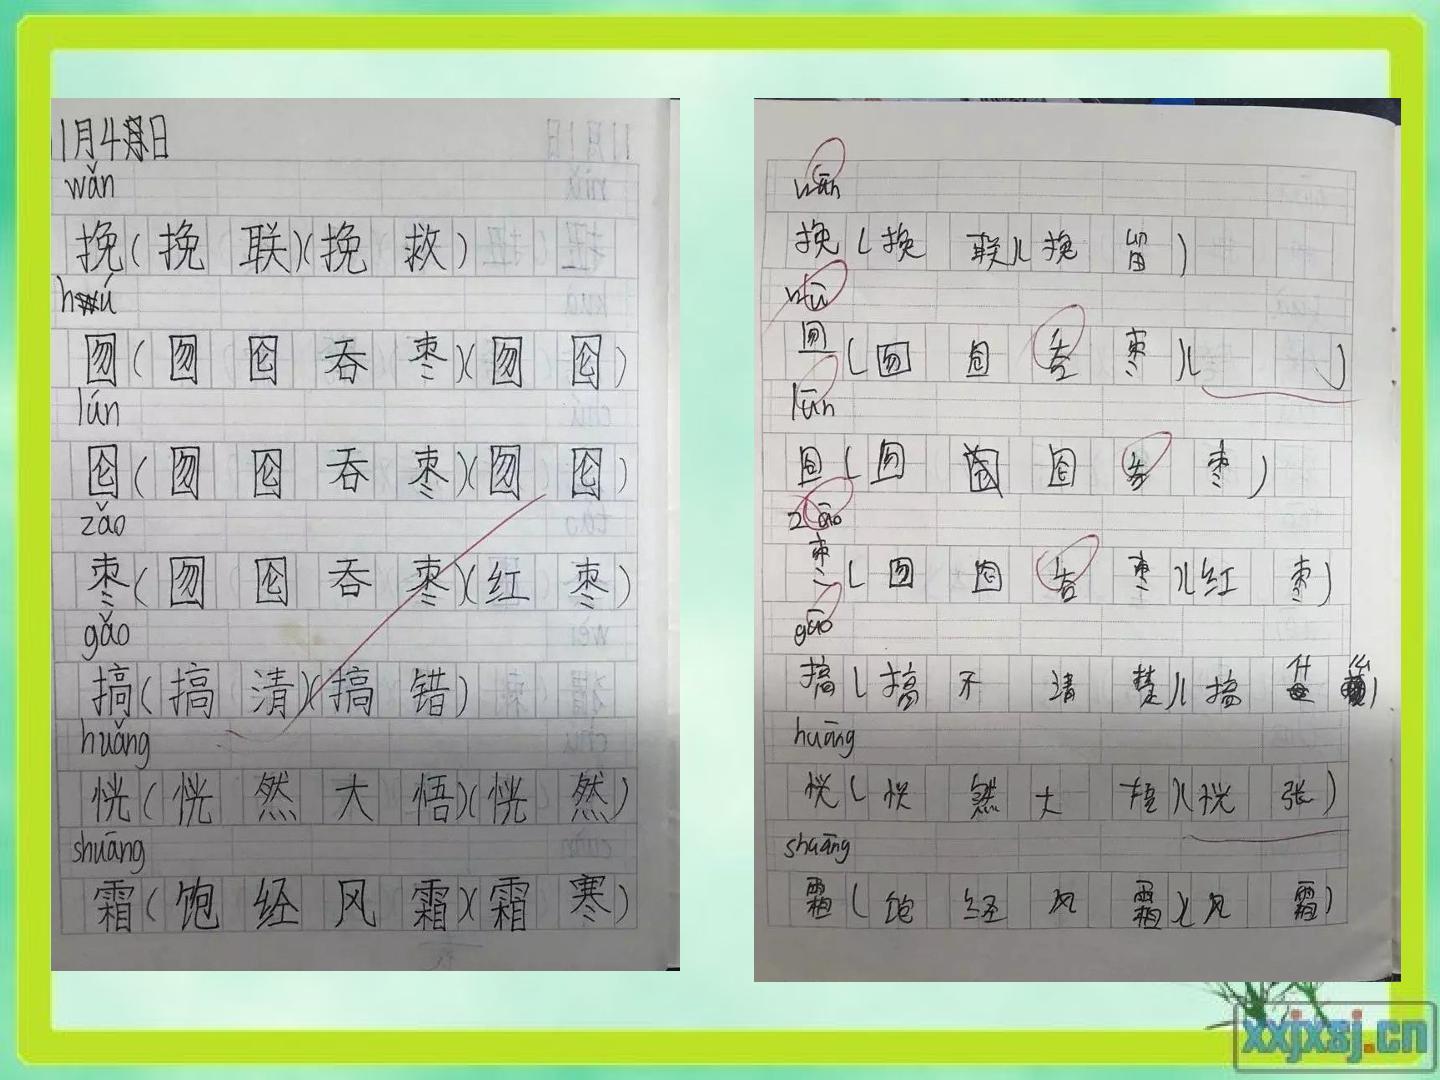 1月4日
wǎn
挽(挽联)(挽救)
hú
囫(囫囵吞枣)(囫囵)
lún
囵(囫囵吞枣)(囫囵)
zǎo
枣(囫囵吞枣)(红枣)
gǎo
搞(搞清)(搞错)
huǎng
恍(恍然大悟)(恍然)
shuāng
霜(饱经风霜)(霜寒)
wān
挽(挽联)(挽留)
囫(囫囵枣)( )
lūn
囵(囫囵枣)
zāo
枣(囫囵枣)(红枣)
gāo
搞(搞不清楚)(搞什
huāng
恍(恍然大悟)(恍张)
shuāng
霜(饱经风霜)(风霜)
xxjxsj.cn